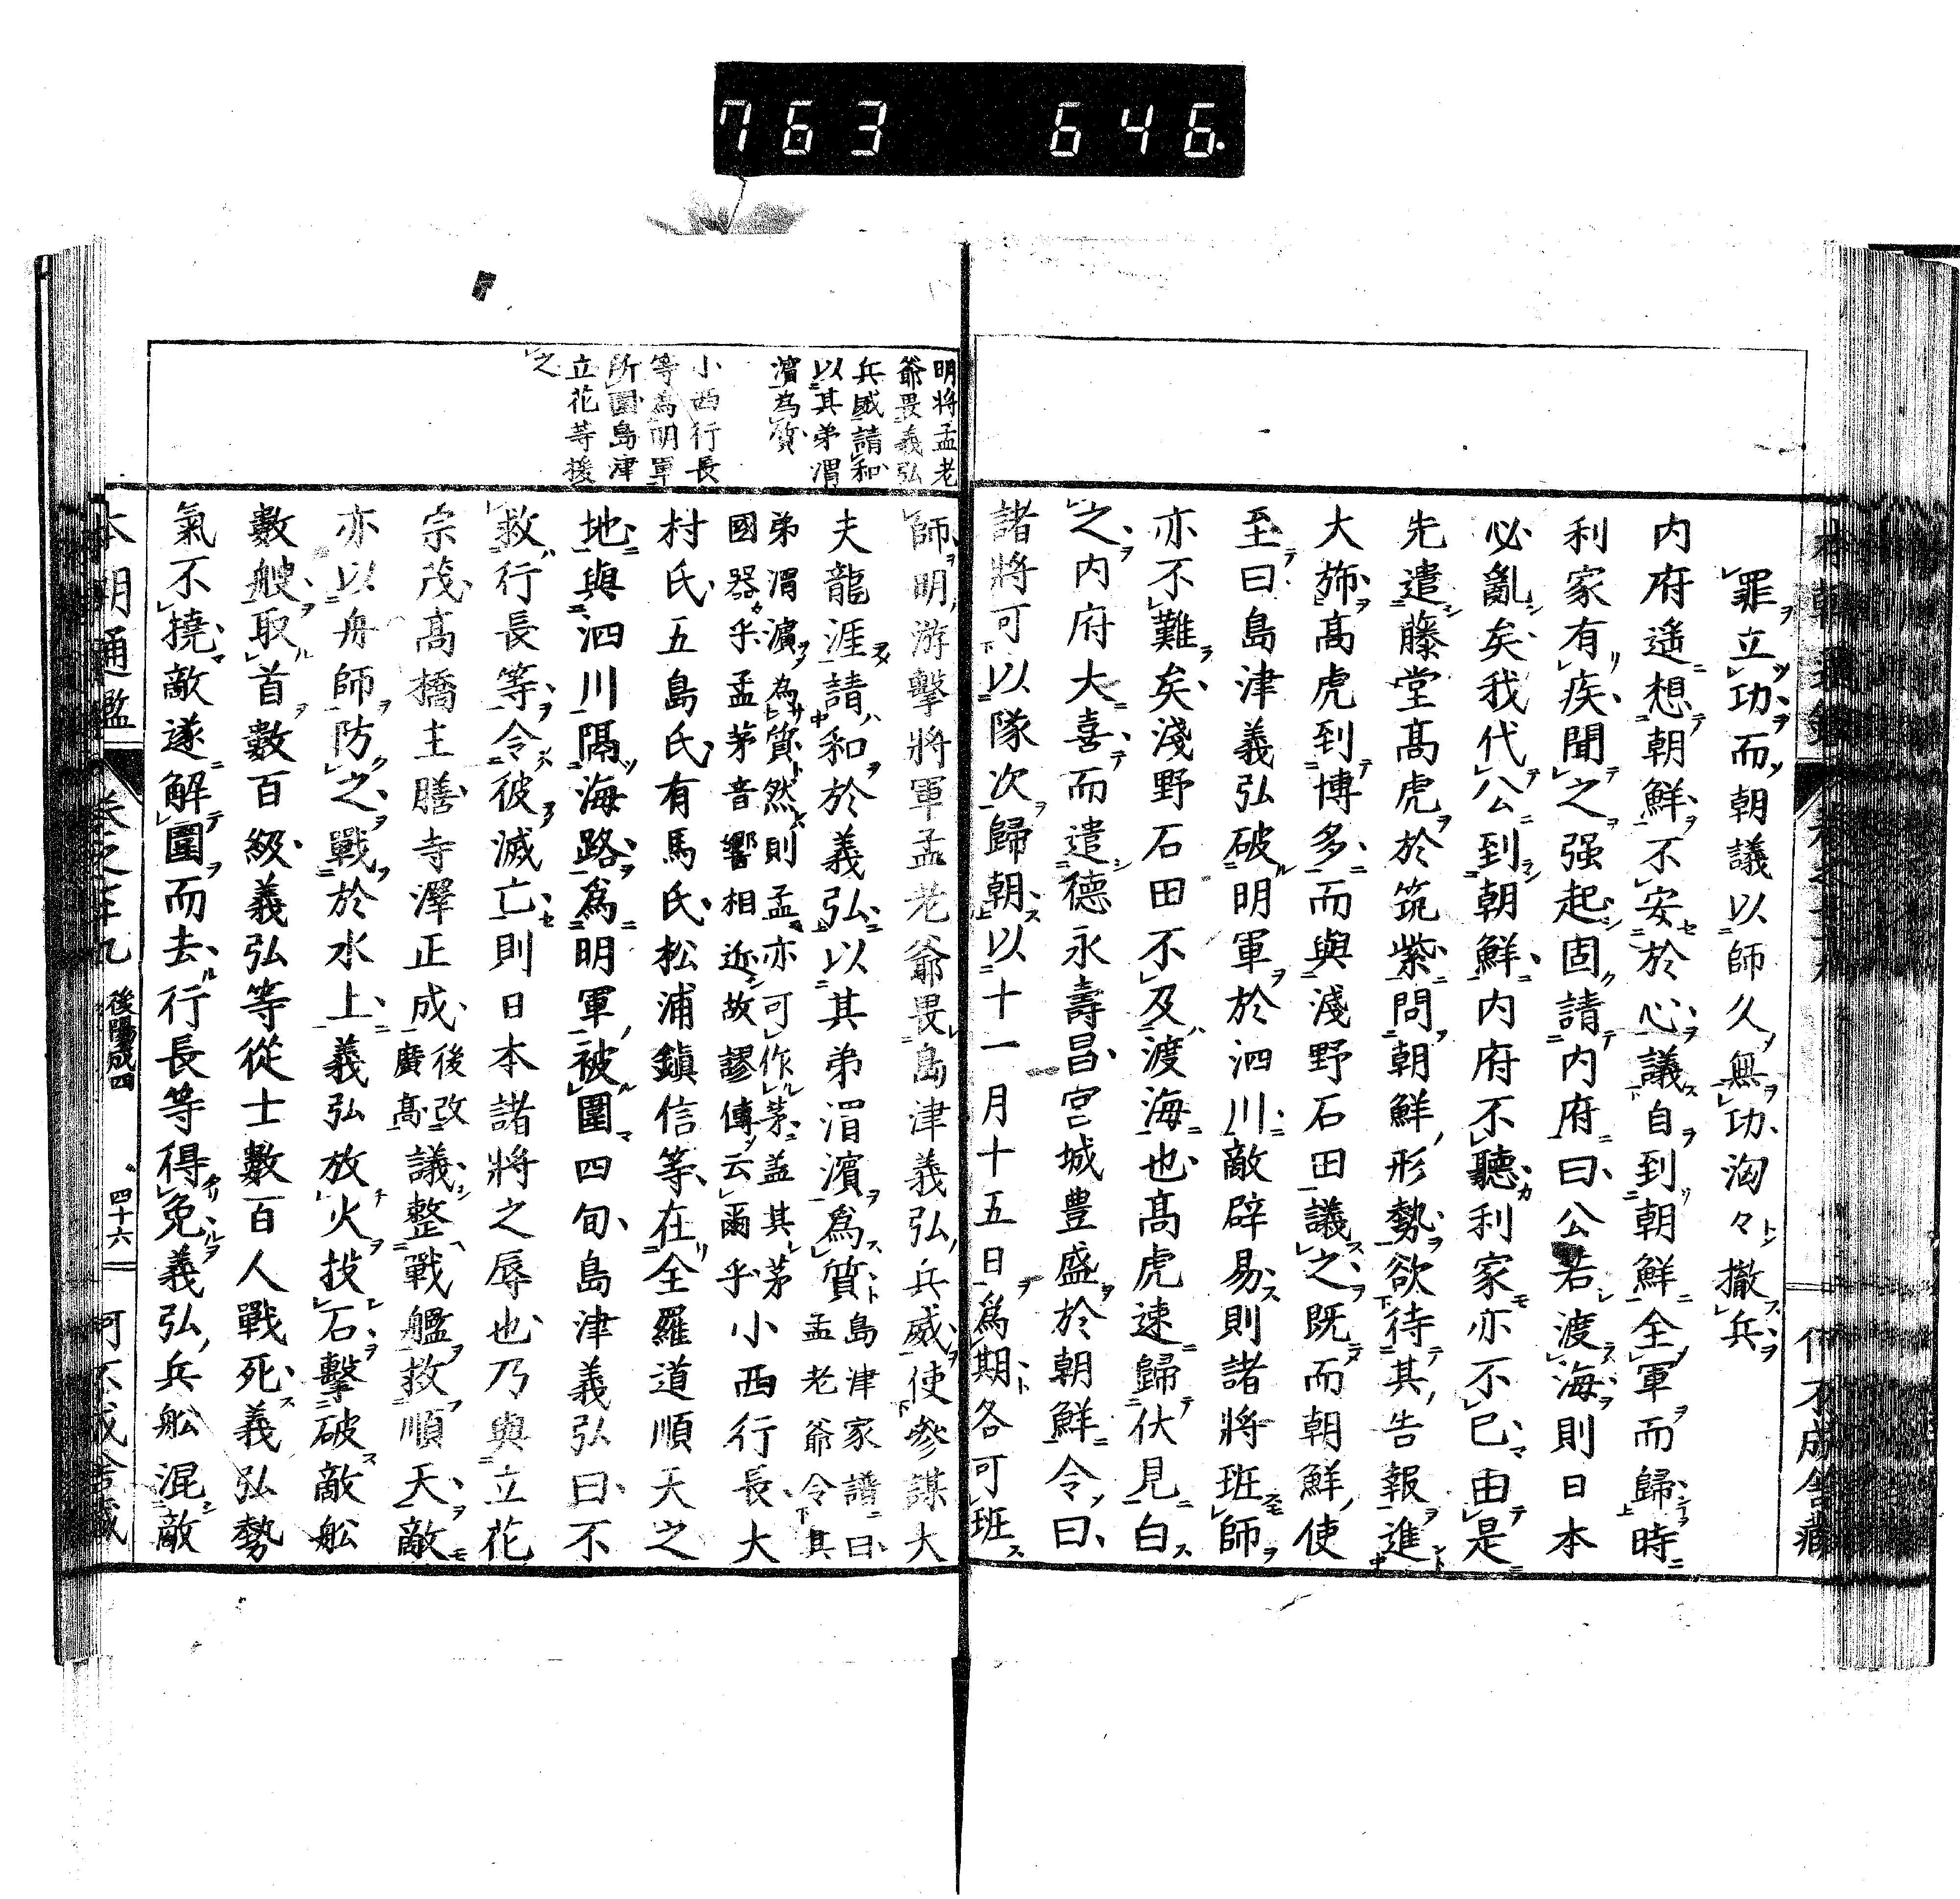 763 646.
罪立功而朝議以師久無功洶々撤兵
内府遥想朝鮮不安於心議自到朝鮮全軍而歸時
利家有疾聞之强起固請内府曰公若渡海則日本
必亂矣我代公到朝鮮内府不聽利家亦不已由是
先遣藤堂髙虎於筑紫問朝鮮形勢欲待其告報進
大旆髙虎到博多而與淺野石田議之既而朝鮮使
至曰島津義弘破明軍於泗川敵辟易則諸將班師
亦不難矣淺野石田不及渡海也髙虎速歸伏見白
之内府大喜而遣德永壽昌宮城豊盛於朝鮮令曰
諸將可以隊次歸朝以十一月十五日爲期各可班
明将孟老
爺畏義弘
兵威請和
以其弟渭
濱為質
小西行長
等爲明軍
所圍島津
立花等援
之
師明游擊將軍孟老爺畏島津義弘兵威使參謀大
夫龍涯請和於義弘以其弟渭濱爲質島津家譜曰孟老爺令其
弟渭濱為質然則孟亦可作茅盖其茅
國器乎孟茅音響相近故謬傳云爾乎小西行長大
村氏五島氏有馬氏松浦鎮信等在全羅道順天之
地與泗川隔海路爲明軍被圍四旬島津義弘曰不
救行長等令彼滅亡則日本諸將之辱也乃與立花
宗茂髙橋主膳寺澤正成後改廣髙議整戰艦救順天敵
亦以舟師防之戰於水上義弘放火投石擊破敵舩
數艘取首數百級義弘等從士數百人戰死義弘勢
氣不撓敵遂解圍而去行長等得免義弘兵舩混敵
本朝通鑑 卷之 九 後陽成四 四十六